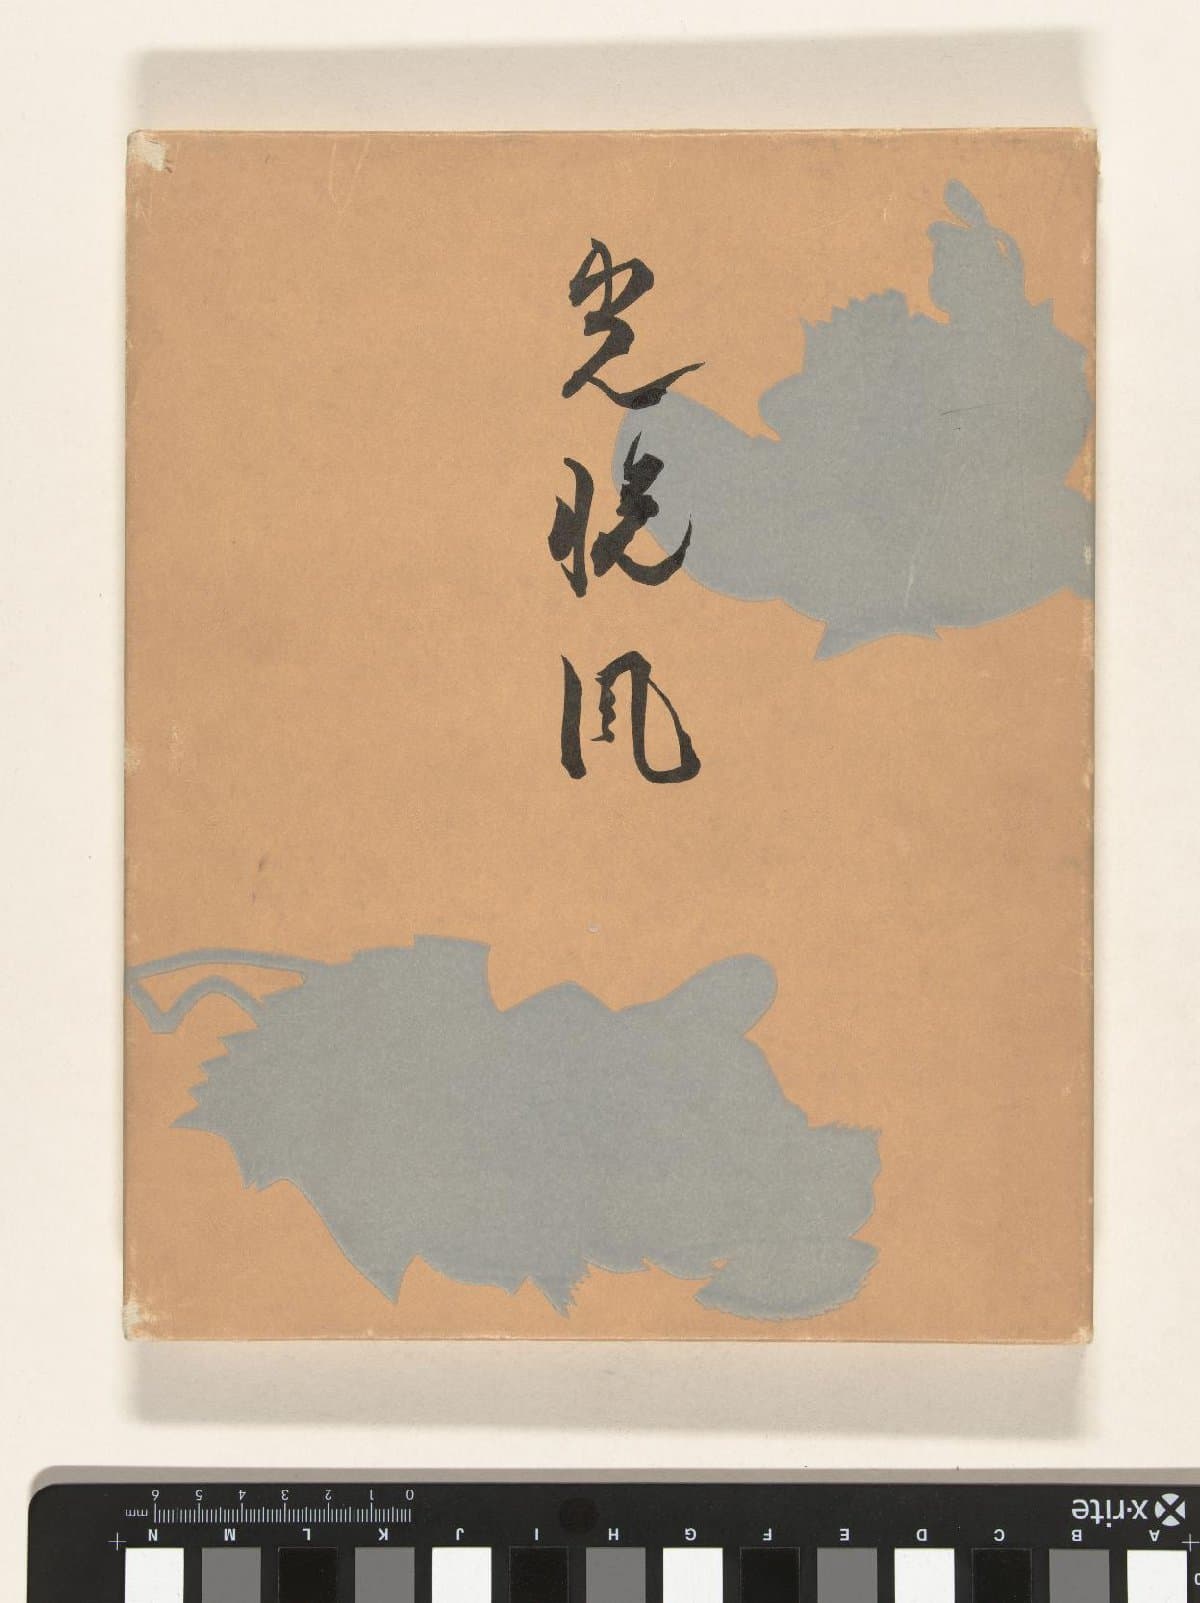 光悦風
x·rite
0 1 2 3 4 5 6 mm
A B C D E F G H I J K L M N